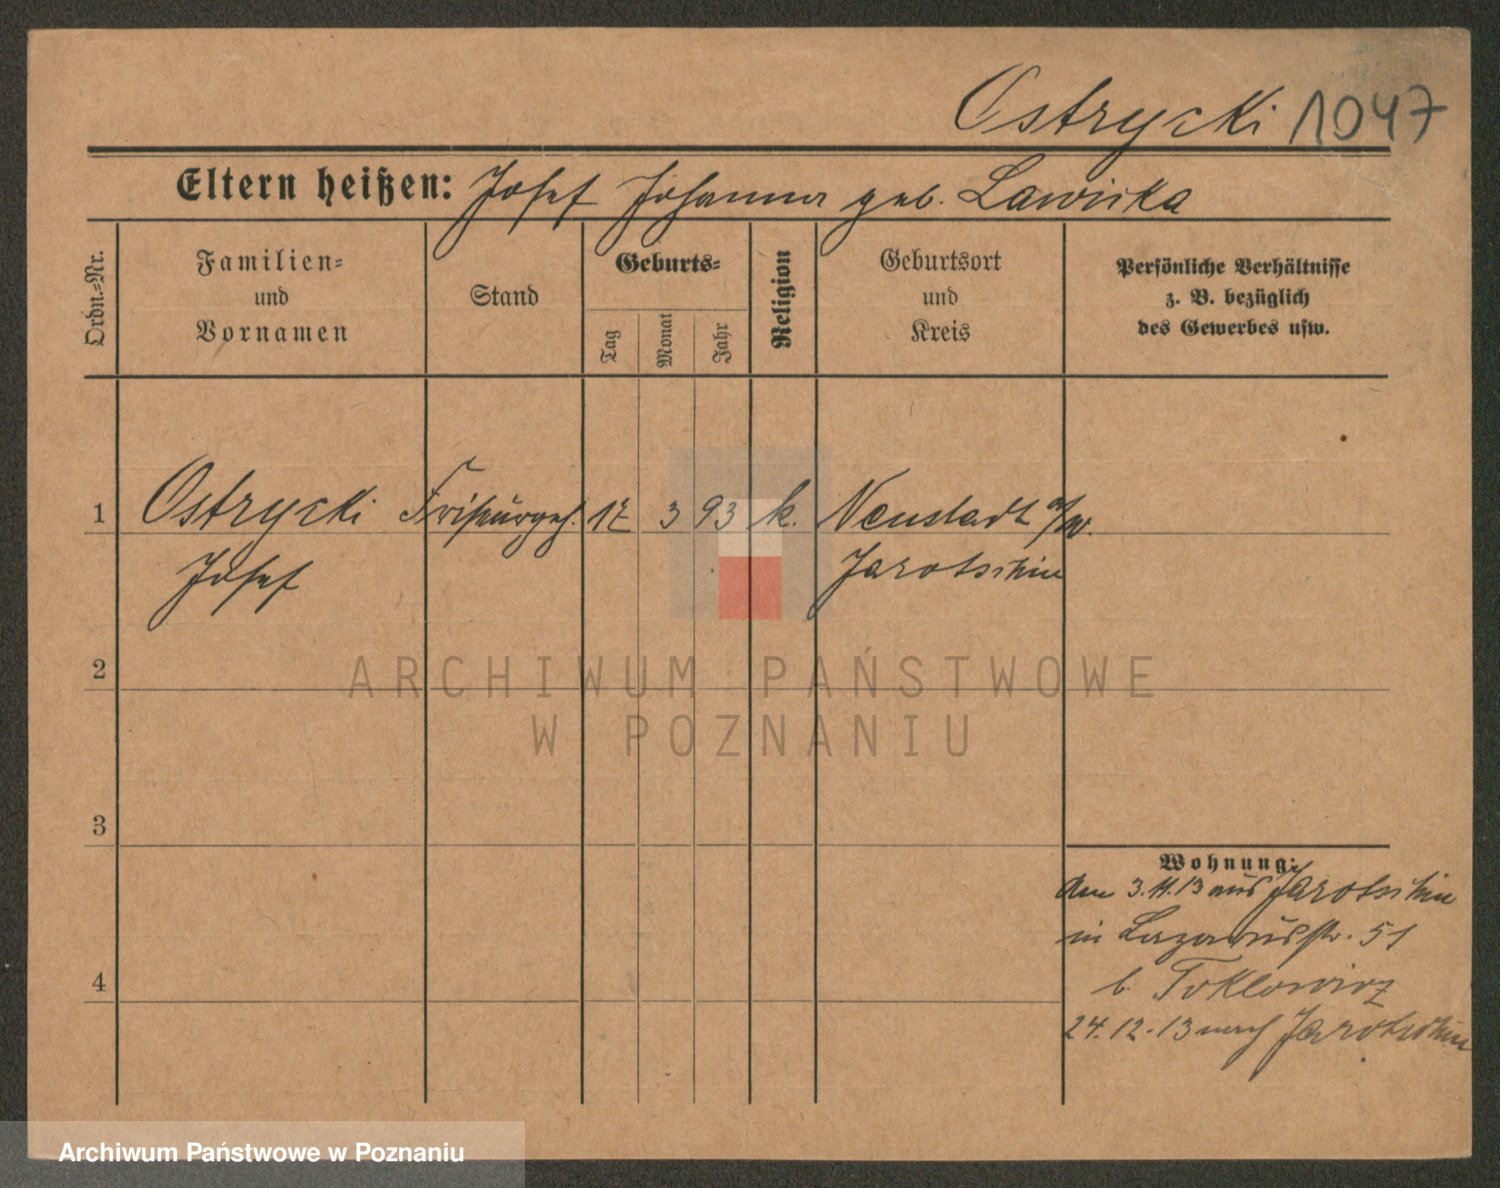 Ostrycki 1047
Eltern heißen: Josef Johanna geb. Lawicka
Ordn.=Nr.
Familien=
und
Vornamen
Stand
Geburts=
Tag
Monat
Jahr
Religion
Geburtsort
und
Kreis
Persönliche Verhältnisse
z. B. bezüglich
des Gewerbes usw.
1 Ostrycki Friseurgeh. 17 3 93 k. Neustadt a/W.
Josef Jarotschin
2
3
4
Wohnung:
den 3.11.13 aus Jarotschin
in Lazarusstr. 51
b.
24.12.13 nach Jarotschin
ARCHIWUM PAŃSTWOWE
W POZNANIU
Archiwum Państwowe w Poznaniu